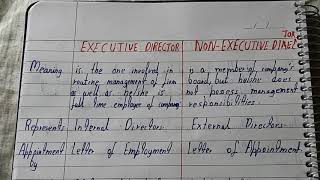 EXECUTIVE DIRECTOR NON-EXECUTIVE DIREC
Meaning is the one involved in is a member of company's
routine management of firm board, but he/she does
as well as he/she is not posses management
full time employee of company responsibilities.
Represents Internal Directors External Directors
Appointment Letter of Employment Letter of Appointment
by